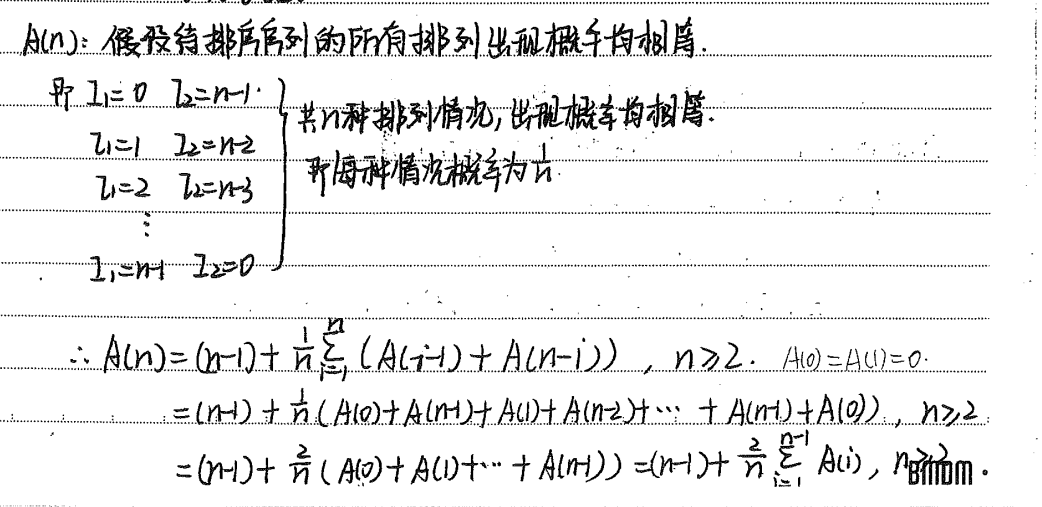 A(n): 假设待排序序列的所有排列出现概率均相等.
即 I₁=0 I₂=n-1.
I₁=1 I₂=n-2
I₁=2 I₂=n-3
⋮
I₁=n-1 I₂=0
共n种排列情况, 出现概率均相等.
即每种情况概率为 1/n.
∴ A(n)=(n-1)+ 1/n ∑_{i=1}^{n} (A(i-1)+A(n-i)), n≥2. A(0)=A(1)=0.
=(n-1)+ 1/n (A(0)+A(n-1)+A(1)+A(n-2)+⋯+A(n-1)+A(0)), n≥2
=(n-1)+ 2/n (A(0)+A(1)+⋯+A(n-1)) =(n-1)+ 2/n ∑_{i=1}^{n-1} A(i), n≥2